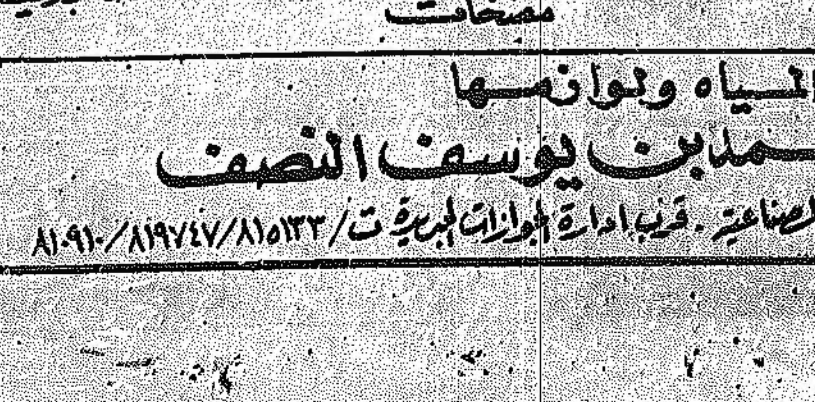 مضخات
المياه ولوازمها
ـمد بن يوسف النصف
الصناعية . قرب ادارة الجوازات الجديدة ت/٨١٥١٣٣/٨١٩٧٤٧/٨١٠٩١٠